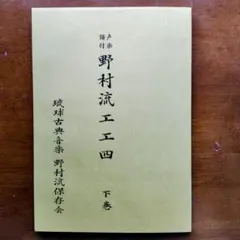 声楽譜付
野村流工工四
下巻
琉球古典音楽 野村流保存会